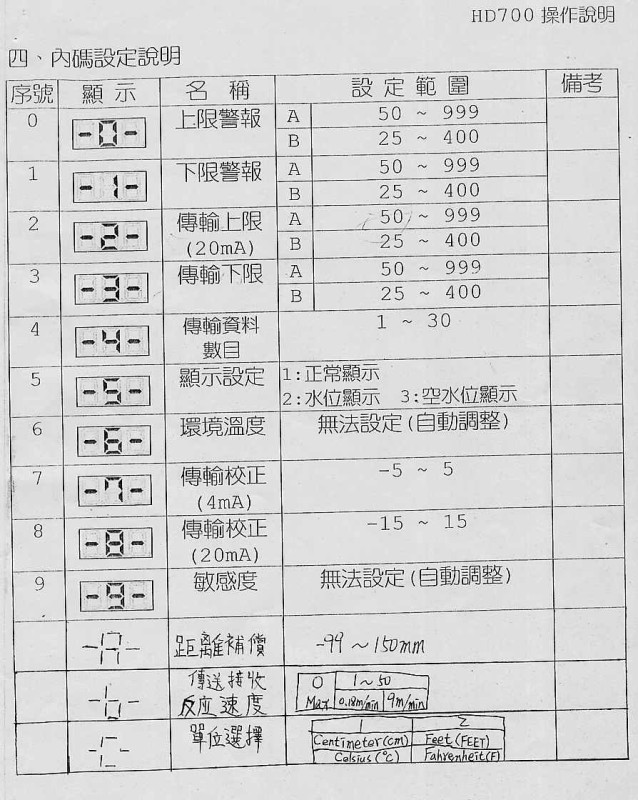 HD700 操作說明
四、內碼設定說明
序號 顯示 名稱 設定範圍 備考
0 -0- 上限警報 A 50 ~ 999
B 25 ~ 400
1 -1- 下限警報 A 50 ~ 999
B 25 ~ 400
2 -2- 傳輸上限 A 50 ~ 999
(20mA) B 25 ~ 400
3 -3- 傳輸下限 A 50 ~ 999
B 25 ~ 400
4 -4- 傳輸資料 1 ~ 30
數目
5 -5- 顯示設定 1:正常顯示
2:水位顯示 3:空水位顯示
6 -6- 環境溫度 無法設定(自動調整)
7 -7- 傳輸校正 -5 ~ 5
(4mA)
8 -8- 傳輸校正 -15 ~ 15
(20mA)
9 -9- 敏感度 無法設定(自動調整)
-A- 距離補償 -99 ~ 150mm
傳送接收 0 1~50
-b- 反应速度 Max 0.18m/min 9m/min
-C- 單位選擇 1 2
Centimeter(cm) Feet(FEET)
Celsius(°C) Fahrenheit(F)